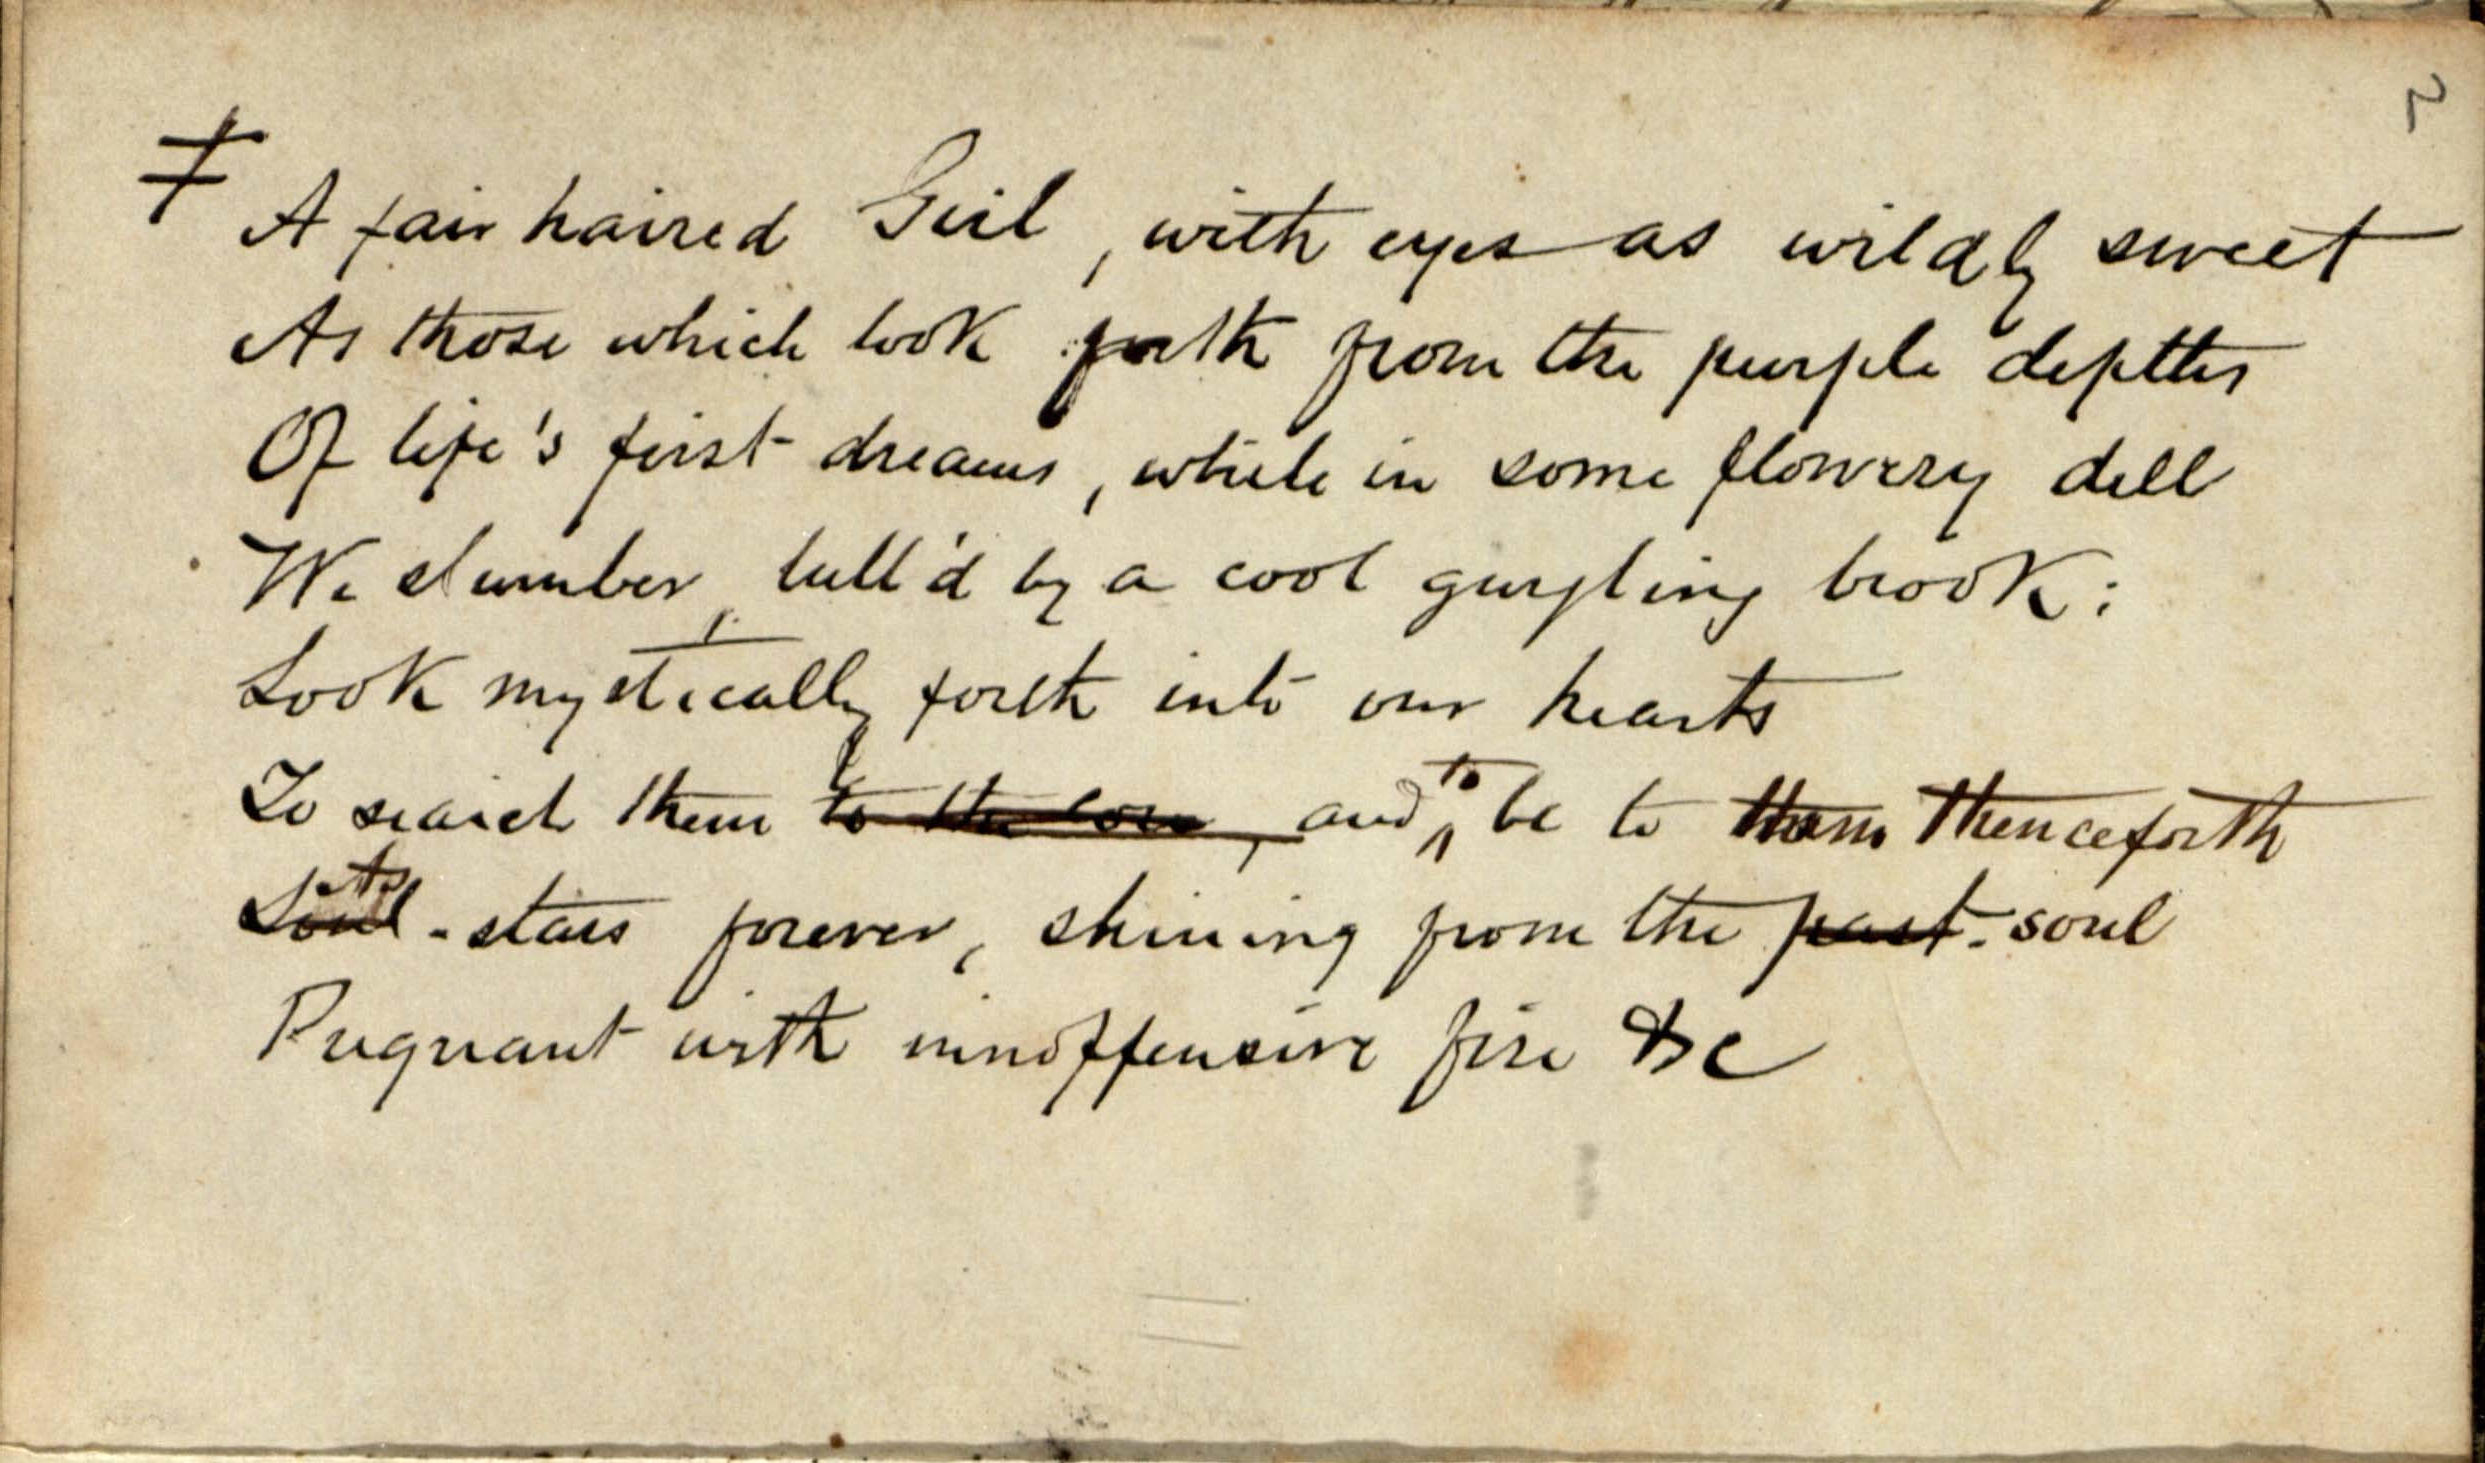 2
‡ A fair haired Girl, with eyes as wildly sweet
As those which look forth from the purple depths
Of life's first dreams, while in some flowery dell
We slumber, lull'd by a cool gurgling brook:
Look mystically forth into our hearts
To search them to the core, and to be to them thenceforth
Soul As - stars forever, shining from the past - soul
Pregnant with innoffensive fire &c